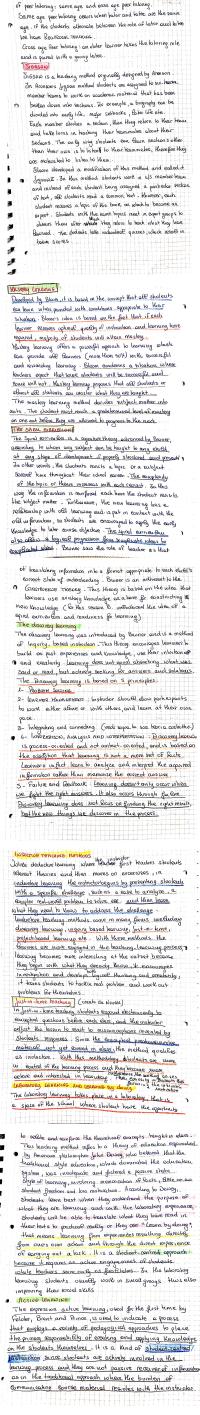 of peer tutoring: same age and cross age peer tutoring.
Same age peer tutoring occurs when tutor and tutee are the same
age. If the students alternate between the role of tutor and tutee
we have Reciprocal tutoring.
Cross age peer tutoring: an older learner takes the tutoring role
and is paired with a young tutee.
JIGSAW
Jigsaw is a teaching method originally designed by Aronson.
In Aronson's Jigsaw method students are assigned to six-
member teams to work on academic material that has been
broken down into sections. For example, a biography can be
divided into early life, major setbacks, later life etc.
Each member studies a section, then they return to their teams
and take turns in teaching their teammates about their
sections. The only way students can learn sections other
than their own is to listen to their teammates, therefore they
are motivated to listen to them.
Slavin developed a modification of this method and called it
Jigsaw II. In this method students work in 4/5 member teams
and instead of each student being assigned a particular section
of text, all students read a common text. However, each
student receives a topic of this text, on which to become an
expert. Students with the same topics meet in expert groups to
discuss them after which they return to teach what they have
learned. The students take individual quizzes, which result in
team scores.
MASTERY LEARNING
Developed by Bloom, it is based on the concept that all students
can learn when provided with conditions appropriate to their
situation. Bloom's idea is based on the fact that if each
learner receives optimal quality of instruction and learning time
required, majority of students will attain mastery.
Mastery learning offers a powerful approach to learning which
can provide all learners (more than 90%) with successful
and rewarding learning. Bloom condemns a situation, where
teachers expect that some students will be successful and
some will not. Mastery learning proposes that all students or
almost all students can master what they are taught.
The mastery learning method divides subject matter into
units. The student must reach a predetermined level of mastery
on one unit before they are allowed to progress to the next.
THE SPIRAL CURRICULUM
The Spiral curriculum is a cognitive theory advanced by Bruner,
according to whom any subject can be taught to any child
at any stage of development if properly structured and presented
In other words, the students revisits a topic or a subject
several times throughout their school career. The complexity
of the topic or theme increases with each revisit. In this
way the information is reinforced each time the student revisits
the subject matter. Furthermore, the new learning has a
relationship with old learning and is put in context with the
old information, so students are encouraged to apply the early
knowledge to later course objectives. The spiral curriculum
also allows a logical progression from simplistic ideas to
complicated ideas. Bruner saw the role of teacher as that
of translating information into a format appropriate to each child's
current state of understanding. Bruner is an adherent to the
Constructivist Theory. This theory is based on the idea that
learners use existing knowledge as a base for constructing
new knowledge (for this reason he introduced the idea of a
spiral curriculum and readiness for learning)
The discovery learning
The discovery learning was introduced by Bruner and is a method
of Inquiry-based instruction. This theory encourages learners to
build on past experiences and knowledge, use their intuition
and creativity. Learning does not equal absorbing what was
said or read, but actively looking for answers and solutions.
The Discovery learning is based on 5 principles:
1- Problem Solving
2- LEARNER MANAGEMENT: instructor should allow participants
to work either alone or with others, and learn at their own
pace.
3- Integrating and connecting
4- INFORMATION ANALYSIS AND INTERPRETATION: Discovery learning
is process-oriented and not content-oriented, and is based on
the assertion that learning is not a mere set of facts.
Learners in fact learn to analyze and interpret the acquired
information rather than memorize the correct answer.
5- Failure and Feedback: Learning doesn't only occur when
we find the right answers. It also occurs through failure.
Discovery learning does not focus on finding the right results,
but the new things we discover in the process.
INDUCTIVE TEACHING METHODS
Unlike deductive learning where the instructor first teaches students
relevant theories and then moves on exercises, in
inductive learning the instructor begins by presenting students
with a specific challenge such as a case to analyze, a
complex real-world problem to solve etc. and then learn
what they need to know to address the challenge.
Inductive teaching methods come in many forms, including
discovery learning, inquiry-based learning, just-in-time,
project-based learning etc. With these methods, the
learners are more engaged in the teaching/learning process
Learning becomes more interesting at the outset because
they begin with what they already know. It encourages
investigation and develops logical thinking and creativity;
it trains students to tackle real problem and work out
problems for themselves.
Just-in-time teaching
In just-in-time teaching, students respond electronically to
conceptual questions before each class, and the instructor
adjust the lesson to react to misconceptions revealed by
students' responses. Since the conceptual questions involve
material not yet covered in class, the method qualifies
as inductive. With this methodology students are in
control of the learning process and they become more
active and interested in learning.
LABORATORY LEARNING AND LEARNING BY DOING
The laboratory learning takes place in a laboratory, that is
a space of the school where student have the opportunity
to settle and reinforce the theoretical concepts taught in class.
This teaching method refers to a theory of education expounded
by American philosopher John Dewey, who believed that the
traditional style education, which dominated the education
system, was inadequate and fostered a passive student
style of learning, involving memorization of facts, little or no
student freedom and low motivation. According to Dewey,
students learn best when they understand the purpose of
what they are learning and with the laboratory experience
students will be able to translate what they have read in
their texts to practical reality or they can "Learn by doing":
this means learning from experiences resulting directly
from one's own action and through the direct experience
of carrying out a task. It is a student-centred approach
because it requires an active engagement of students,
while teachers serve only as facilitators. In the laboratory
learning students usually work in small groups, thus also
improving their social skills
ACTIVE LEARNING
The expression active learning, used for the first time by
Felder, Brent and Prince, is used to indicate a process
that employs a variety of pedagogical approaches to place
the primary responsibility of creating and applying knowledge
on the students themselves. It is a kind of student-centred
instruction since students are actively involved in the
learning process and they are not passive receivers of information
as in the traditional approach where the burden of
communicating course material resides with the instructor.